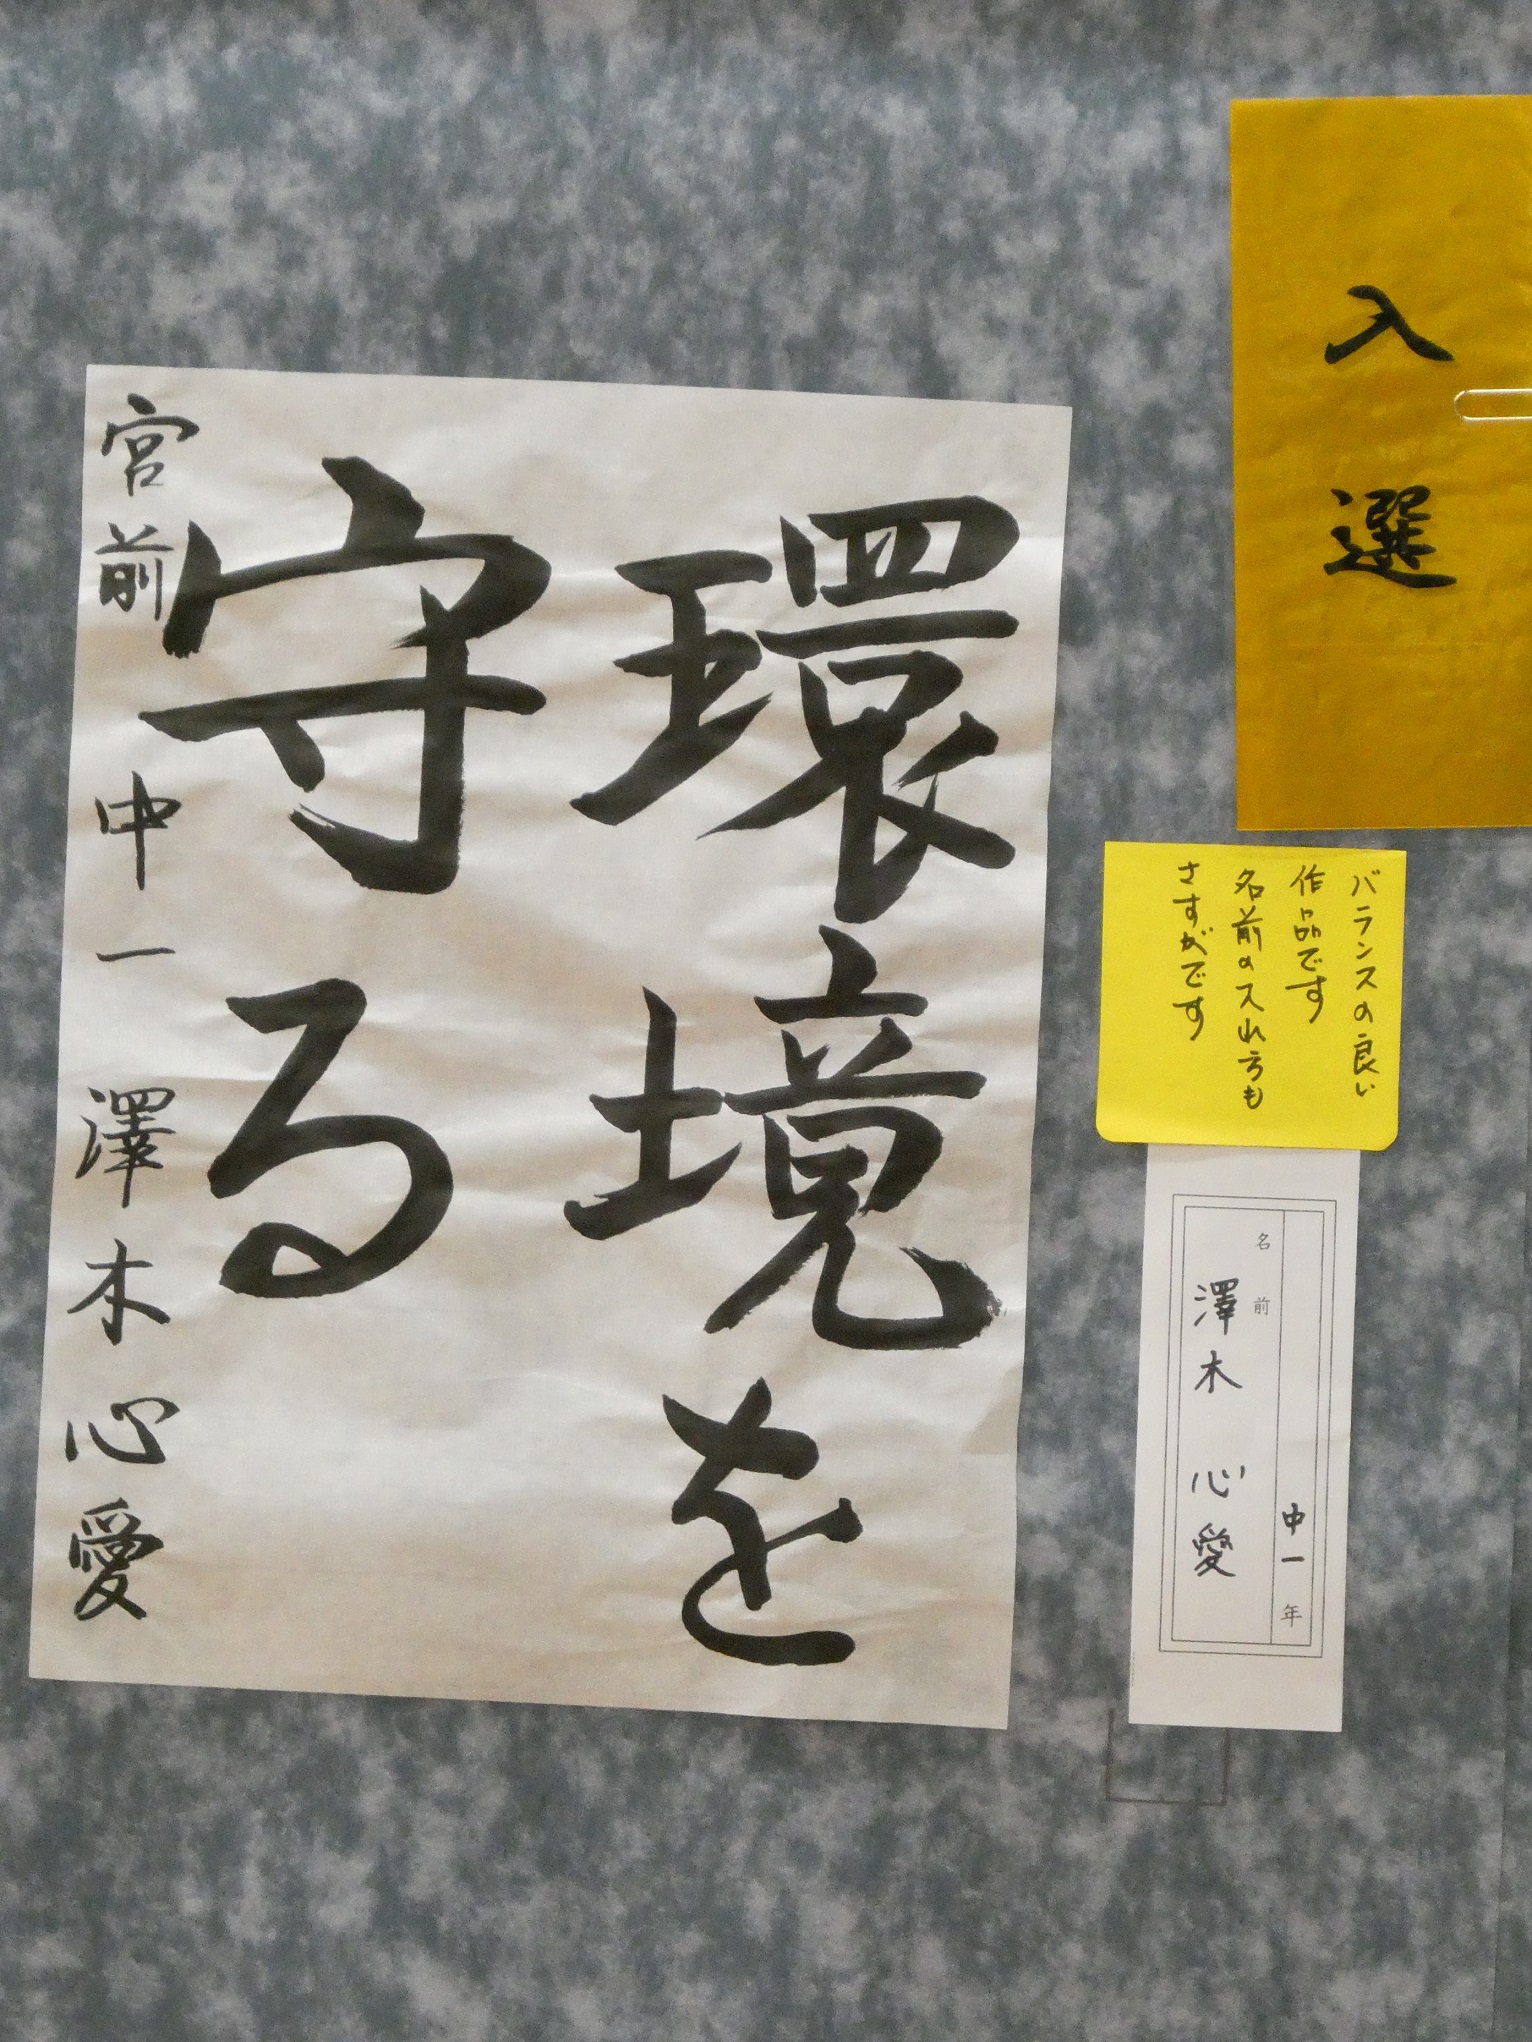 入選
バランスの良い
作品です
名前の入れ方も
さすがです
中一年
名前
澤木 心愛
環境を
守る
宮前中一 澤木心愛